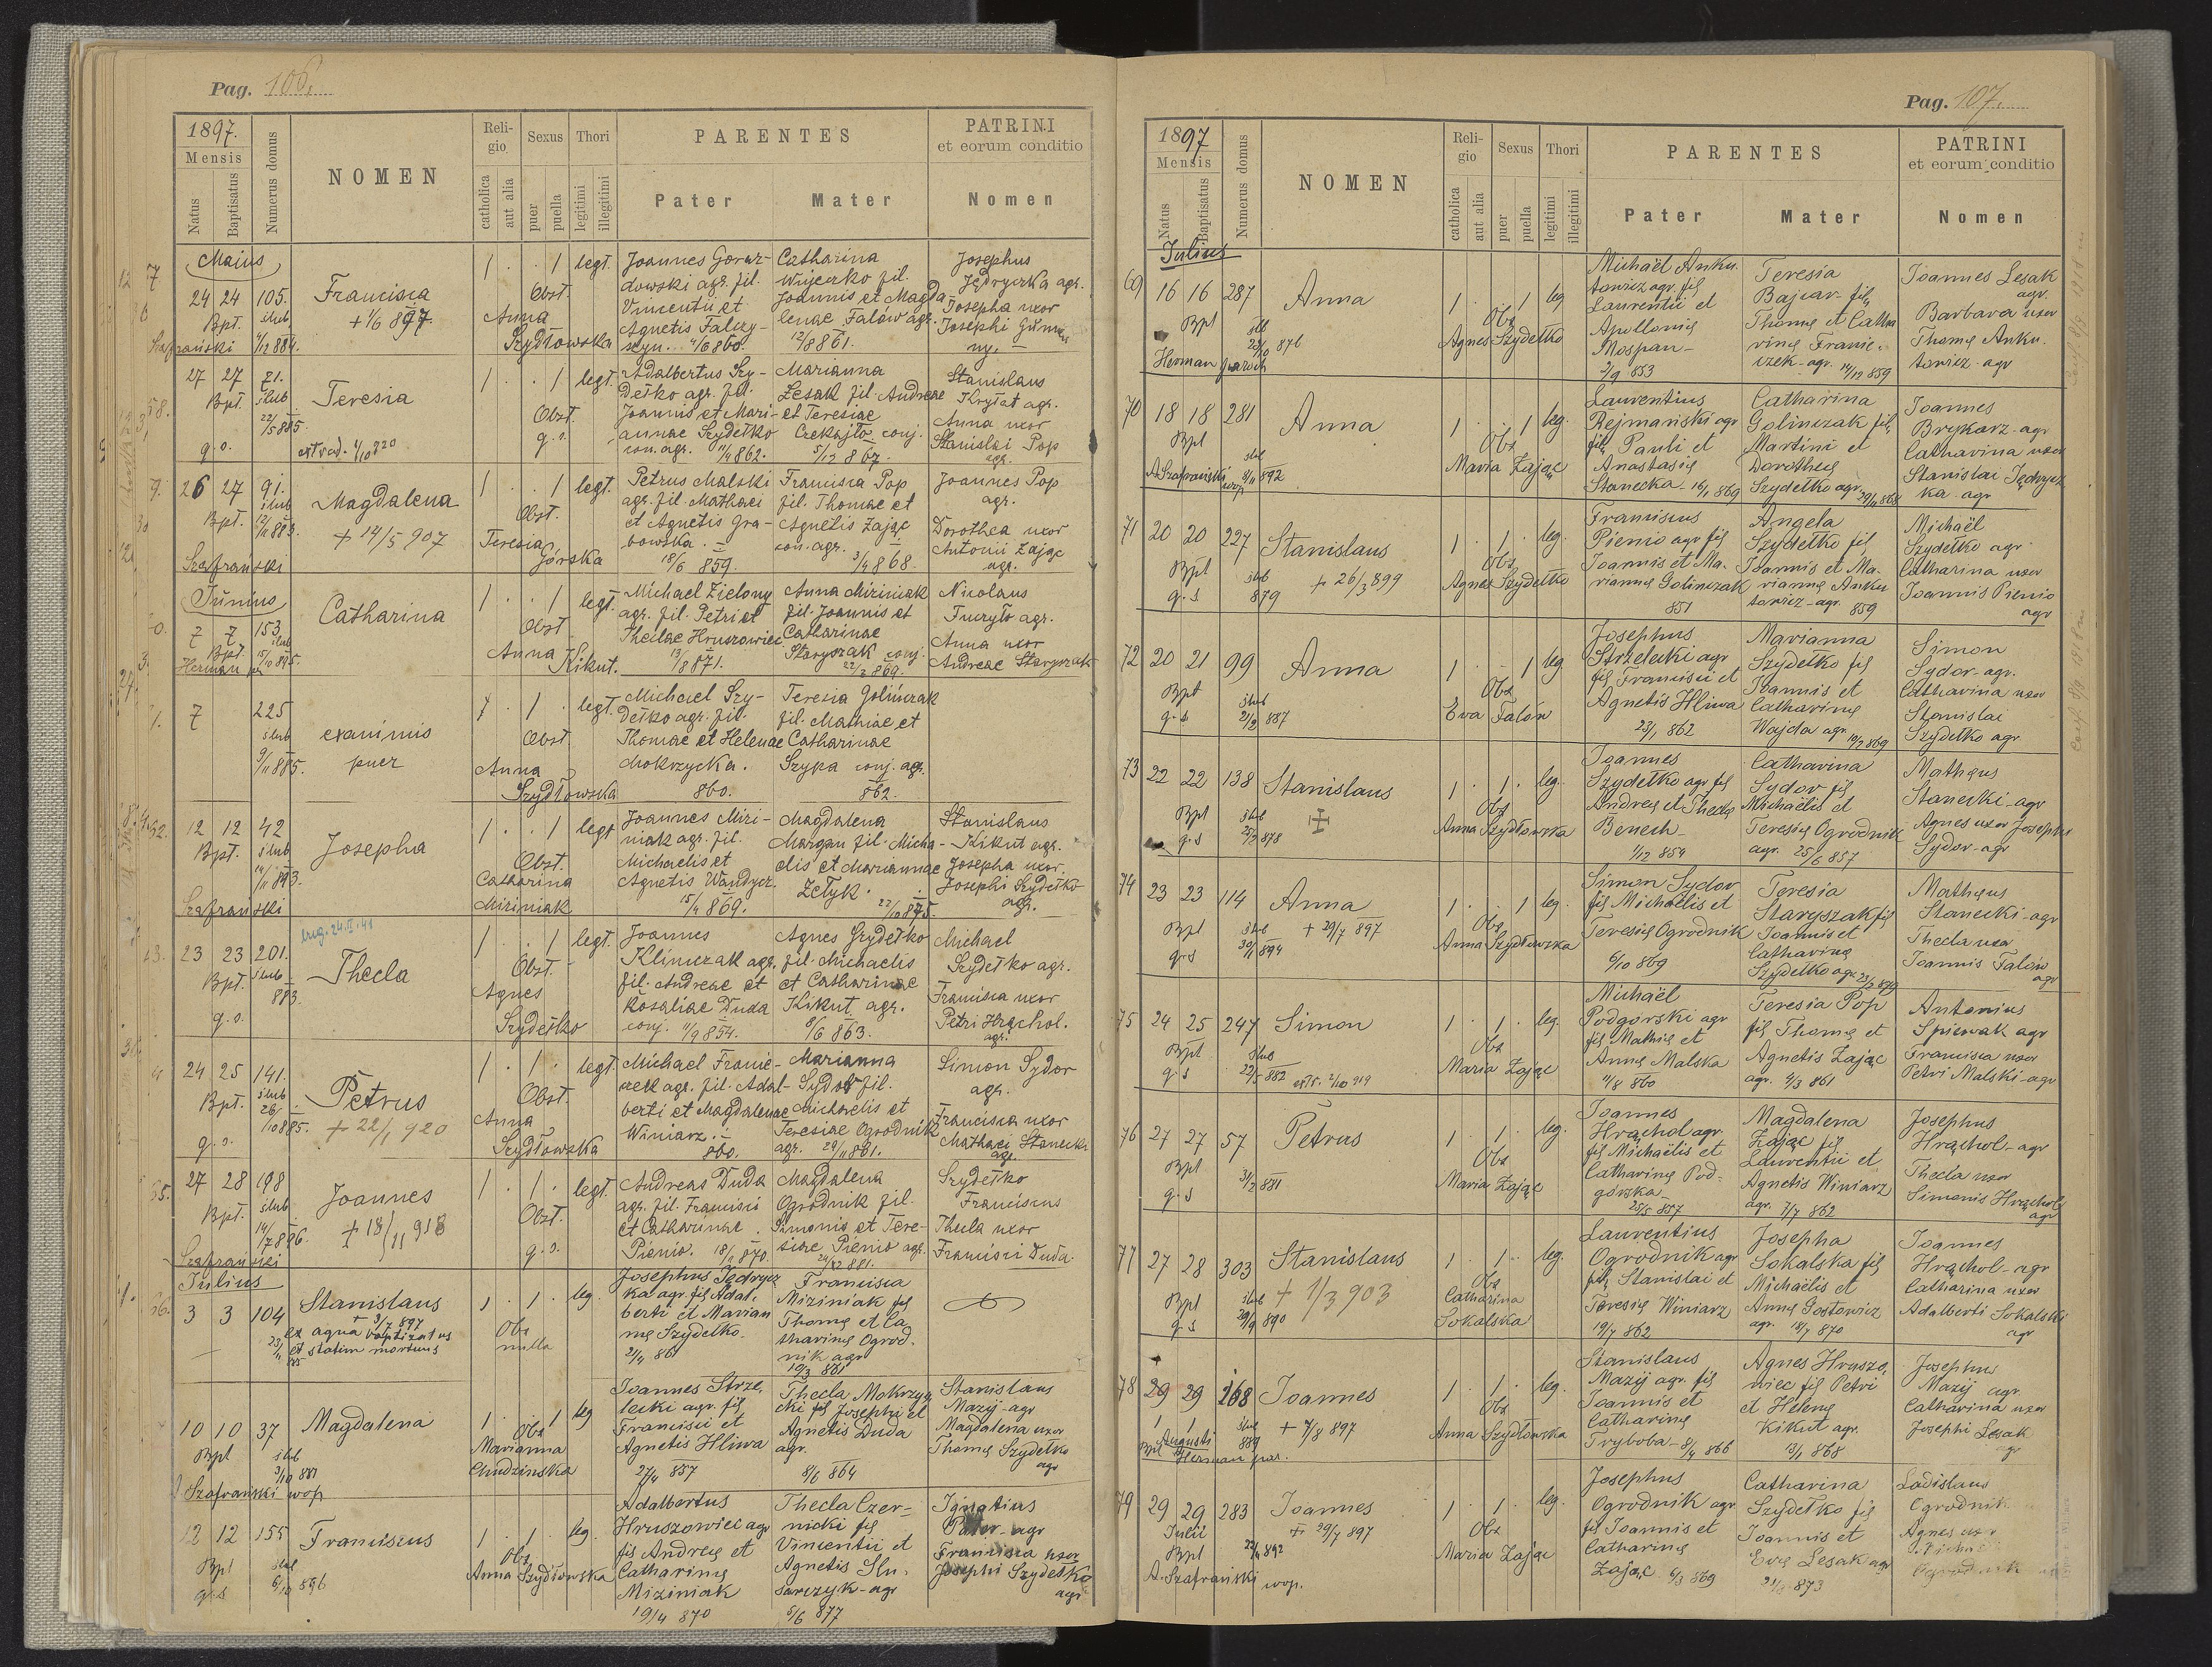 Pag. 106.
1897.
Mensis
Natus
Baptisatus
Numerus domus
NOMEN
Reli-
gio
catholica
aut alia
Sexus
puer
puella
Thori
legitimi
illegitimi
PARENTES
Pater
Mater
PATRINI
et eorum conditio
Nomen
Maius
24 24 105.
Bpt. slub
Szafrański 1/12 884.
Francisca
+ 1/6 897.
1 . . 1 legt.
Obst.
Anna
Szydłowska
Joannes Goraz-
dowski agr. fil.
Vincentii et
Agnetis Falczy-
Catharina
Wujeczko fil.
Joannis et Magda
lenae Falów agr.
12/8 861.
Josephus
Jędryczka agr.
Josepha uxor
Josephi
27 27 21.
Bpt. slub
22/5 885.
g. o.
Teresia
extrad. 4/10 920
1 . . 1 legt.
Obst.
g. o.
Adalbertus Szy-
dełko agr. fil.
Joannis et Mari-
annae Szydełko
con. agr. 11/4 862.
Marianna
Lesak fil. Andreae
et Teresiae
Czekajło conj.
5/12 867.
Stanislaus
Krytat agr.
Anna uxor
Stanislai Pop
agr.
26 27 91.
Bpt. slub
12/11 883.
Szafrański
Magdalena
+ 14/5 907
1 . . 1 legt.
Obst.
Teresia
Górska
Petrus Malski
agr. fil. Mathaei
et Agnetis Gra-
bowska.
18/6 859.
Francisca Pop
fil. Thomae et
Agnetis Zając
con. agr.
3/4 868.
Joannes Pop
agr.
Dorothea uxor
Antonii Zając
agr.
Junius
7 7 153.
Bpt. slub
15/10 895.
Herman
Catharina
1 . . 1 legt.
Obst.
Anna
Kikut.
Michael Zielony
agr. fil. Petri et
Theclae Hruszowiec
13/8 871.
Anna Miziniak
fil. Joannis et
Catharinae
Staryszak conj.
22/2 869.
Nicolaus
Fuczyło agr.
Anna uxor
Andreae Staryszak
7 225
slub
9/11 885.
exanimis
puer
1 . 1 . legt.
Obst.
Anna
Szydłowska
Michael Szy-
dełko agr. fil.
Thomae et Helenae
Mokrzycka.
860.
Teresia Golińczak
fil. Mathiae et
Catharinae
Szypa conj. agr.
862.
12 12 42
Bpt. slub
14/11 893.
Szafrański
Josepha
1 . . 1 legt
Obst.
Catharina
Miziniak
Joannes Mizi-
niak agr. fil.
Michaelis et
Agnetis Wandycz.
15/4 869.
Magdalena
Margan fil. Micha-
elis et Mariannae
Zełyk.
22/10 875.
Stanislaus
Kikut agr.
Josepha uxor
Josephi Szydełko
agr.
23 23 201.
Bpt. slub
883.
g. o.
Thecla
1 . . 1 legt.
Obst.
Agnes
Szydełko
Joannes
Klimczak agr.
fil. Andreae et
Rosaliae Duda
conj. 11/9 854.
Agnes Szydełko
fil. Michaelis
et Catharinae
Kikut agr.
8/6 863.
Michael
Szydełko agr.
Francisca uxor
Petri Hrąchol.
agr.
24 25 141.
Bpt. slub
26/10 885.
g. o.
Petrus
+ 22/1 920
1 . 1 . legt.
Obst.
Anna
Szydłowska
Michael Franie-
czek agr. fil. Adal-
berti et Magdalenae
Winiarz.
860.
Marianna
Sydor fil.
Michaelis et
Teresiae Ogrodnik
agr. 29/11 861.
Simon Sydor
agr.
Francisca uxor
Mathaei Stanecki
agr.
27 28 198
Bpt. slub
14/7 886.
Szafrański
Joannes
+ 18/11 918
1 . 1 . legt.
Obst.
g. o.
Andreas Duda
agr. fil. Francisci
et Catharinae
Pienio. 18/2 870.
Magdalena
Ogrodnik fil.
Simonis et Tere-
siae Pienio agr.
24/12 881.
Szydełko
Franciscus
Thecla uxor
Francisci Duda.
Julius
3 3 104
Stanislaus
+ 3/7 897
ex aqua baptizatus
et statim mortuus
1 . 1 . leg.
Obs
nulla
Josephus Jędrycz
ka agr. fil Adal.
berti et Marian
nę Szydełko.
21/4 861
Francisca
Miziniak fil
Thomę et Ca
tharinę Ogrod.
nik agr
10/3 861
10 10 37
Bpt slub
3/10 881
A Szafrański wop
Magdalena
1 . . 1 leg
Obs
Marianna
Chudzinska
Joannes Strze,
lecki agr. fil
Francisci et
Agnetis Hliwa
27/4 857
Thecla Mokrzyc
cki fil Josephi et
Agnetis Duda
agr.
8/6 864
Stanislaus
Mazij-agr
Magdalena uxor
Thomę Szydełko
agr
12 12 155
Bpt slub
g. s 6/10 896
Franciscus
1 . 1 . leg
Obs
Anna Szydłowska
Adalbertus
Hruszowiec agr
fil Andreę et
Catharinę
Miziniak
19/4 870
Thecla Czer-
nicki fil
Vincentii et
Agnetis Slu-
sarczyk-agr
5/6 877
Ignatius
agr
Francisca uxor
Josephi Szydełko
agr
Pag. 107.
1897
Mensis
Natus
Baptisatus
Numerus domus
NOMEN
Reli-
gio
catholica
aut alia
Sexus
puer
puella
Thori
legitimi
illegitimi
PARENTES
Pater
Mater
PATRINI
et eorum conditio
Nomen
Julius
69 16 16 287
Bpt slb
876
Herman paroch
Anna
1 . . 1 leg
Obs
Agnes Szydełko
Michaël Anku.
towicz agr. fil
Laurentii et
Apollonię
Mospan-
2/9 853
Teresia
Bajcar- fil
Thomę et Catha
rinę Franie.
czek-agr. 14/12 859
Joannes Lesak
agr.
Barbara uxor
Thomę Anku.
towicz-agr
70 18 18 281
Bpt slub
A Szafrański wop 8/11 892
Anna
1 . . 1 leg.
Obs
Maria Zając
Laurentius
Rejmański agr
fil Pauli et
Anastasię
Stanecka - 16/1 869
Catharina
Golinczak fil
Martini et
Dorotheę
Szydełko agr 29/11 868
Joannes
Brykarz-agr
Catharina uxor
Stanislai Jędrycz
ka-agr
71 20 20 227
Bpt slub
g. s 879
Stanislaus
+ 26/3 899
1 . 1 . leg.
Obs
Agnes Szydełko
Franciscus
Pienio agr fil
Joannis et Ma.
riannę Golinczak
851
Angela
Szydełko fil
Joannis et Ma.
riannę Anku
towicz-agr. 859
Michaël
Szydełko agr
Catharina uxor
Joannis Pienio
agr
72 20 21 99
Bpt slub
g. s 21/2 887
Anna
1 . . 1 leg
Obs
Eva Falón
Josephus
Strzelecki agr
fil Francisci et
Agnetis Hliwa
23/1 862
Marianna
Szydełko fil
Joannis et
Catharinę
Wajda agr 10/2 869
Simon
Sydor-agr.
Catharina uxor
Stanislai
Szydełko agr
73 22 22 138
Bpt slub
g. s 25/2 878
Stanislaus
+
1 . 1 . leg.
Obs
Anna Szydłowska
Joannes
Szydełko agr fil
Andreę et Theclę
Benech-
1/12 854
Catharina
Sydor fil
Michaëlis et
Teresię Ogrodnik
agr. 25/6 857
Mathęus
Stanecki-agr
Agnes uxor Josephi
Sydor-agr
74 23 23 114
Bpt slub
g. s 30/1 894
Anna
+ 29/7 897
1 . . 1 leg.
Obs
Anna Szydłowska
Simon Sydor
fil Michaëlis et
Teresię Ogrodnik
6/10 869
Teresia
Staryszak fil
Joannis et
Catharinę
Szydełko agr
Mathęus
Stanecki-agr
Thecla uxor
Joannis Falów
agr
75 24 25 247
Bpt slub
g. s 22/5 882
Simon
extr. 2/10 919
1 . 1 . leg.
Obs
Maria Zając
Michaël
Podgórski agr
fil Mathię et
Annę Malska
11/8 860
Teresia Pop
fil Thomę et
Agnetis Zając
agr. 4/3 861
Antonius
Spiewak agr
Francisca uxor
Petri Malski-agr
76 27 27 57
Bpt
g. s 31/2 881
Petrus
1 . 1 . leg.
Obs
Maria Zając
Joannes
Hrąchol agr.
fil Michaëlis et
Catharinę Pod-
górska-
25/5 857
Magdalena
Zając fil
Laurentii et
Agnetis Winiarz
agr. 7/7 862
Josephus
Hrąchol-agr
Thecla uxor
Simonis Hrąchol
agr
77 27 28 303
Bpt slub
g. s 29/9 890
Stanislaus
+ 1/3 903
1 . 1 . leg.
Obs
Catharina
Sokalska
Laurentius
Ogrodnik agr
fil, Stanislai et
Teresię Winiarz
19/7 862
Josepha
Sokalska fil
Michaëlis et
Annę Gostowicz
agr. 18/7 870
Joannes
Hrąchol-agr
Catharina uxor
Adalberti Sokalski
agr
78 29 29 268
1 1 slub
Bpt Augusti 889
Herman par.
Joannes
+ 7/8 897
1 . 1 . leg.
Obs
Anna Szydłowska
Stanislaus
Mazij agr. fil
Joannis et
Catharinę
Tryboba- 8/4 866
Agnes Hruszo,
wiec fil Petri
et Helenę
Kikut agr.
13/1 868
Josephus
Mazij agr.
Catharina uxor
Josephi Lesak
agr
79 29 29 283
Julii
Bpt 22/11 892
A. Szafrański wop.
Joannes
+ 29/7 897
1 . 1 . leg.
Obs
Maria Zając
Josephus
Ogrodnik agr
fil Joannis et
Catharinę
Zając 6/3 869
Catharina
Szydełko fil
Joannis et
Evę Lesak agr
873
Ladislaus
Ogrodnik
Agnes uxor
Ogrodnik